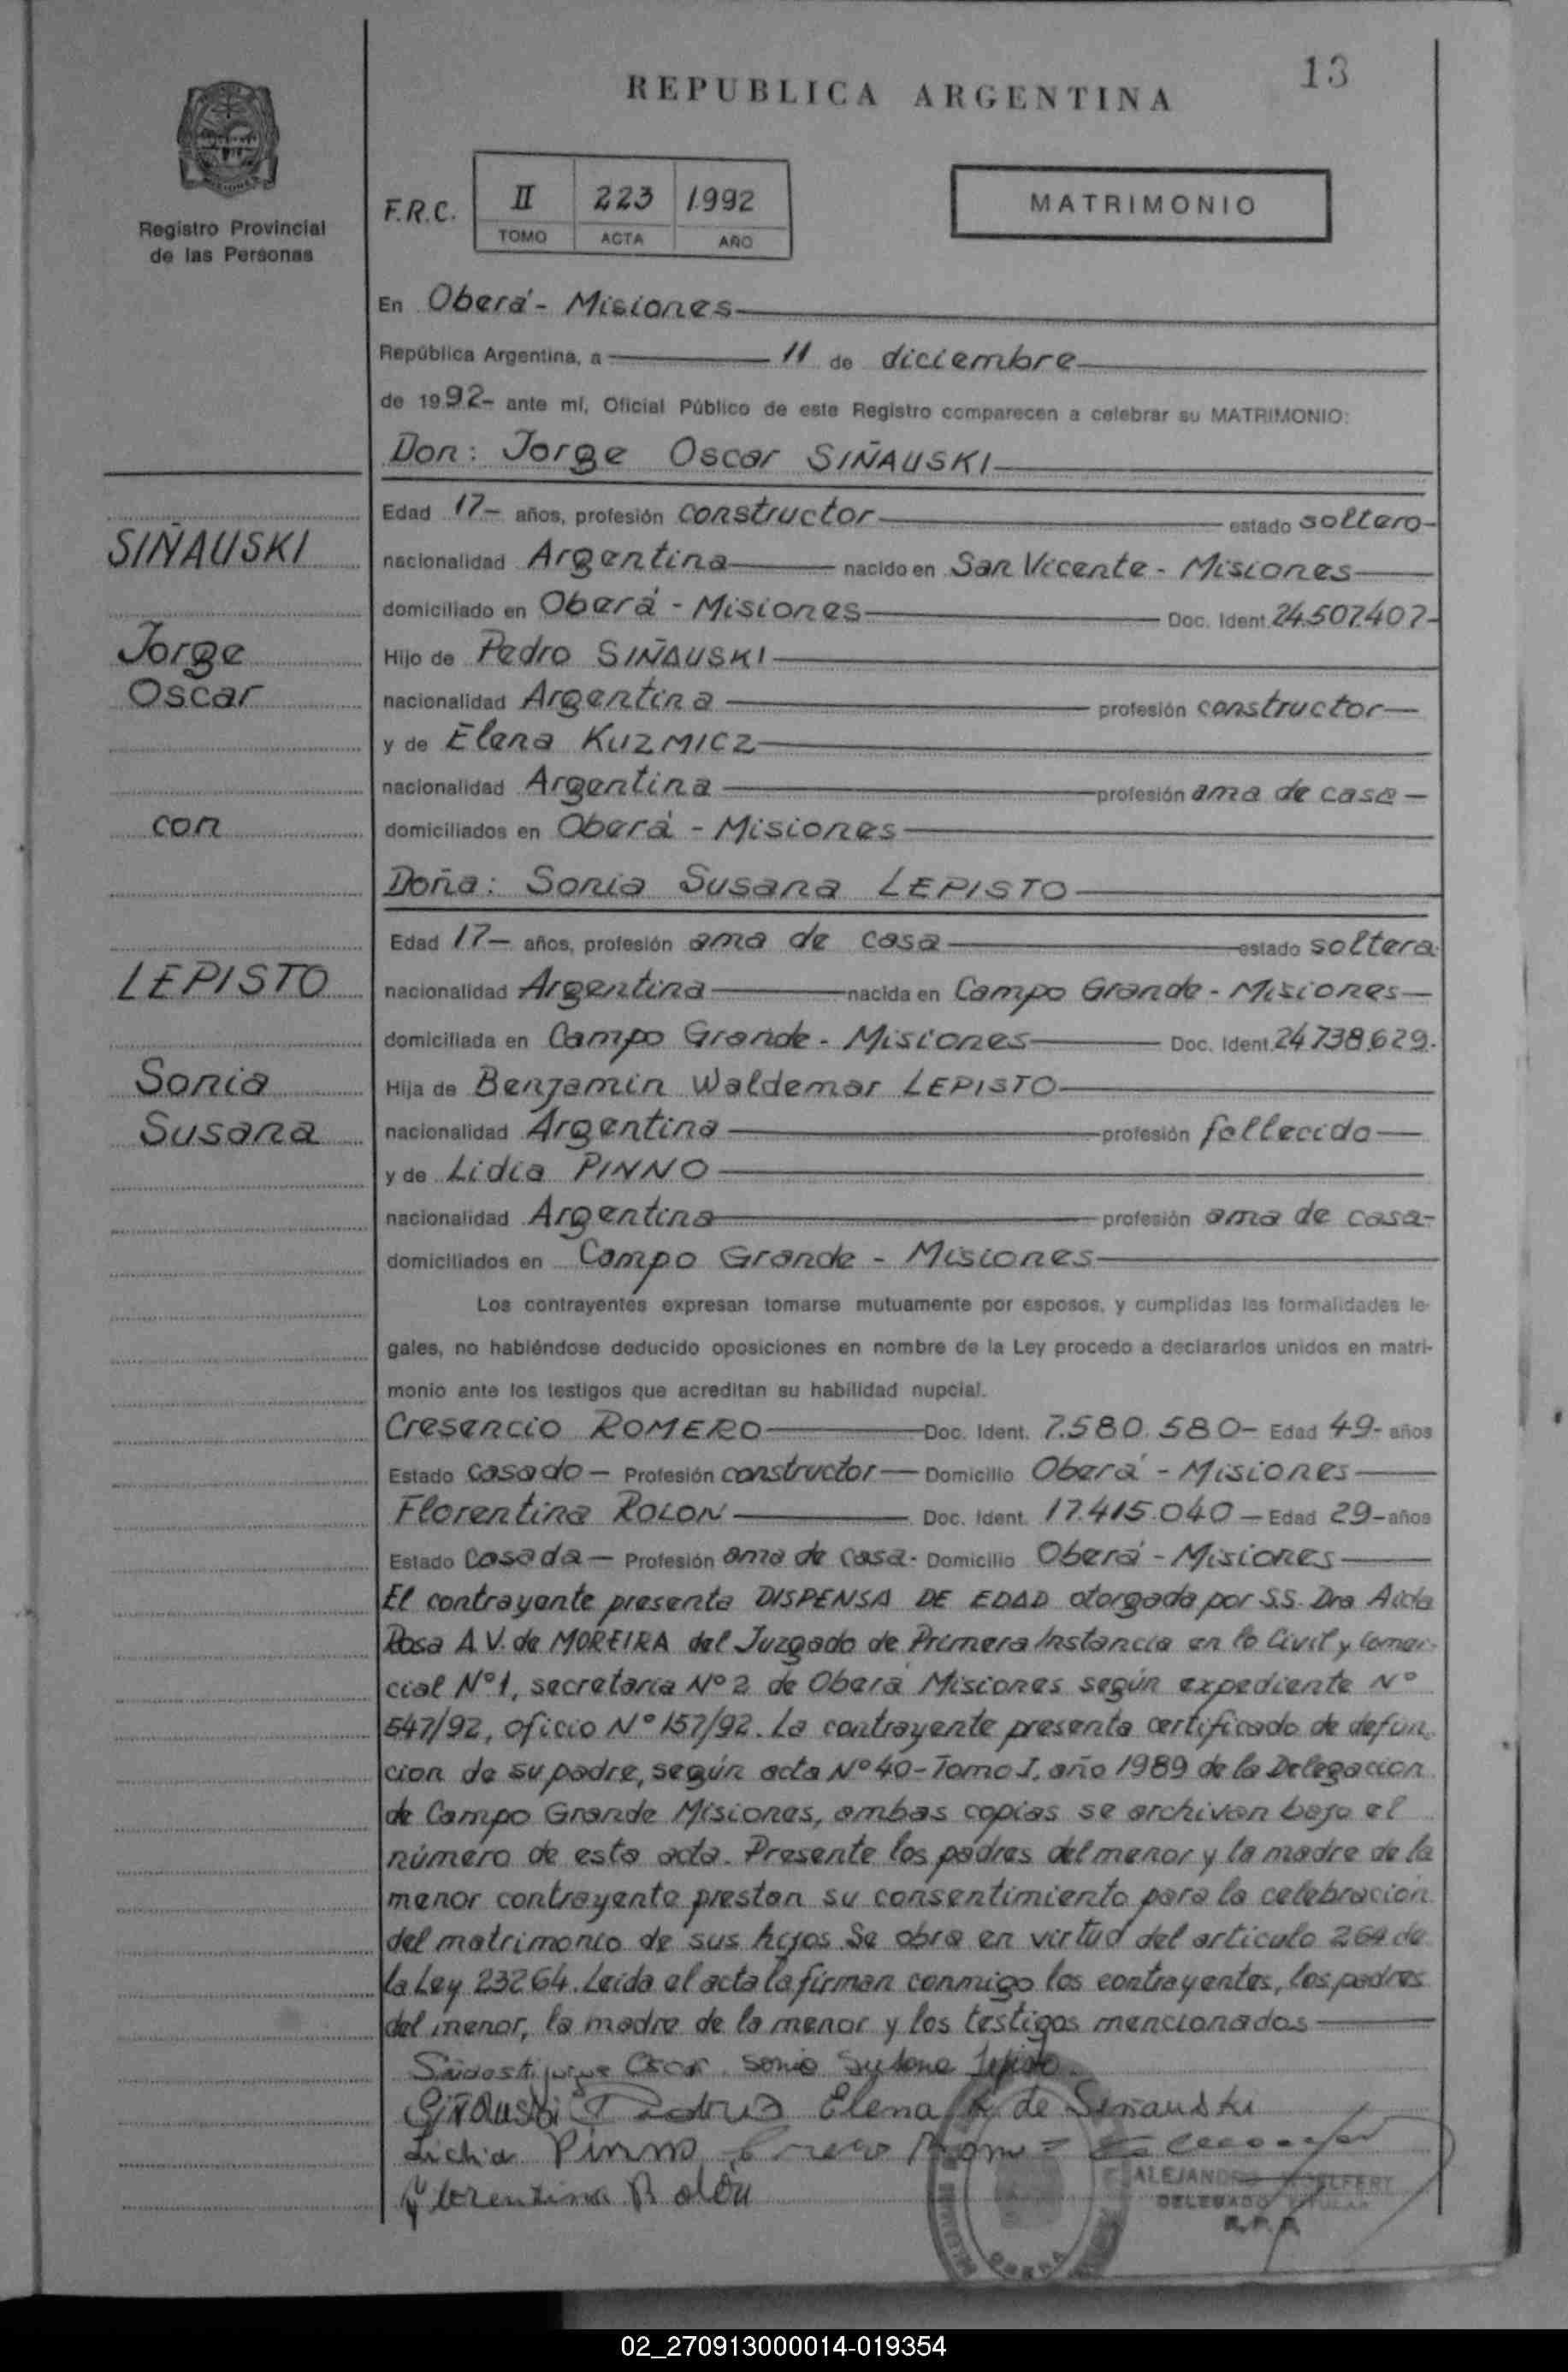 13
REPUBLICA ARGENTINA
Registro Provincial
de las Personas
F.R.C.
II 223 1.992
TOMO ACTA AÑO
MATRIMONIO
En Oberá - Misiones
República Argentina, a 11 de diciembre
de 1992- ante mí, Oficial Público de este Registro comparecen a celebrar su MATRIMONIO:
Don: Jorge Oscar SIÑAUSKI
Edad 17- años, profesión constructor estado soltero-
SIÑAUSKI
nacionalidad Argentina nacido en San Vicente - Misiones
domiciliado en Oberá - Misiones Doc. Ident. 24.507.407-
Jorge
Hijo de Pedro SIÑAUSKI
Oscar
nacionalidad Argentina profesión constructor
y de Elena KUZMICZ
nacionalidad Argentina profesión ama de casa -
con
domiciliados en Oberá - Misiones
Doña: Sonia Susana LEPISTO
Edad 17- años, profesión ama de casa estado soltera.
LEPISTO
nacionalidad Argentina nacida en Campo Grande - Misiones
domiciliada en Campo Grande - Misiones Doc. Ident. 24.738.629.
Sonia
Hija de Benjamin Waldemar LEPISTO
Susana
nacionalidad Argentina profesión fallecido
y de Lidia PINNO
nacionalidad Argentina profesión ama de casa-
domiciliados en Campo Grande - Misiones
Los contrayentes expresan tomarse mutuamente por esposos, y cumplidas las formalidades le-
gales, no habiéndose deducido oposiciones en nombre de la Ley procedo a declararlos unidos en matri-
monio ante los testigos que acreditan su habilidad nupcial.
Cresencio ROMERO Doc. Ident. 7.580.580- Edad 49- años
Estado casado - Profesión constructor - Domicilio Oberá - Misiones
Florentina ROLON Doc. Ident. 17.415.040 - Edad 29- años
Estado casada - Profesión ama de casa. Domicilio Oberá - Misiones
El contrayente presenta DISPENSA DE EDAD otorgada por S.S. Dra Aida
Rosa A.V. de MOREIRA del Juzgado de Primera Instancia en lo Civil y Comer-
cial N° 1, secretaria N° 2 de Oberá Misiones según expediente N°
547/92, oficio N° 157/92. La contrayente presenta certificado de defun-
cion de su padre, según acta N° 40 - Tomo I, año 1989 de la Delegacion
de Campo Grande Misiones, ambas copias se archivan bajo el
número de esta acta. Presente los padres del menor y la madre de la
menor contrayente prestan su consentimiento para la celebracion
del matrimonio de sus hijos. Se obra en virtud del articulo 264 de
la Ley 23264. Leida el acta la firman conmigo los contrayentes, los padres
del menor, la madre de la menor y los testigos mencionados
Oscar Sonia Susana Lepisto.
Siñauski Pedro Elena K. de Sinauski
Lidia Pinno
Florentina Rolón
ALEJANDRO
DELEGADO TITULAR
R.P.P.
OBERA
02_270913000014-019354